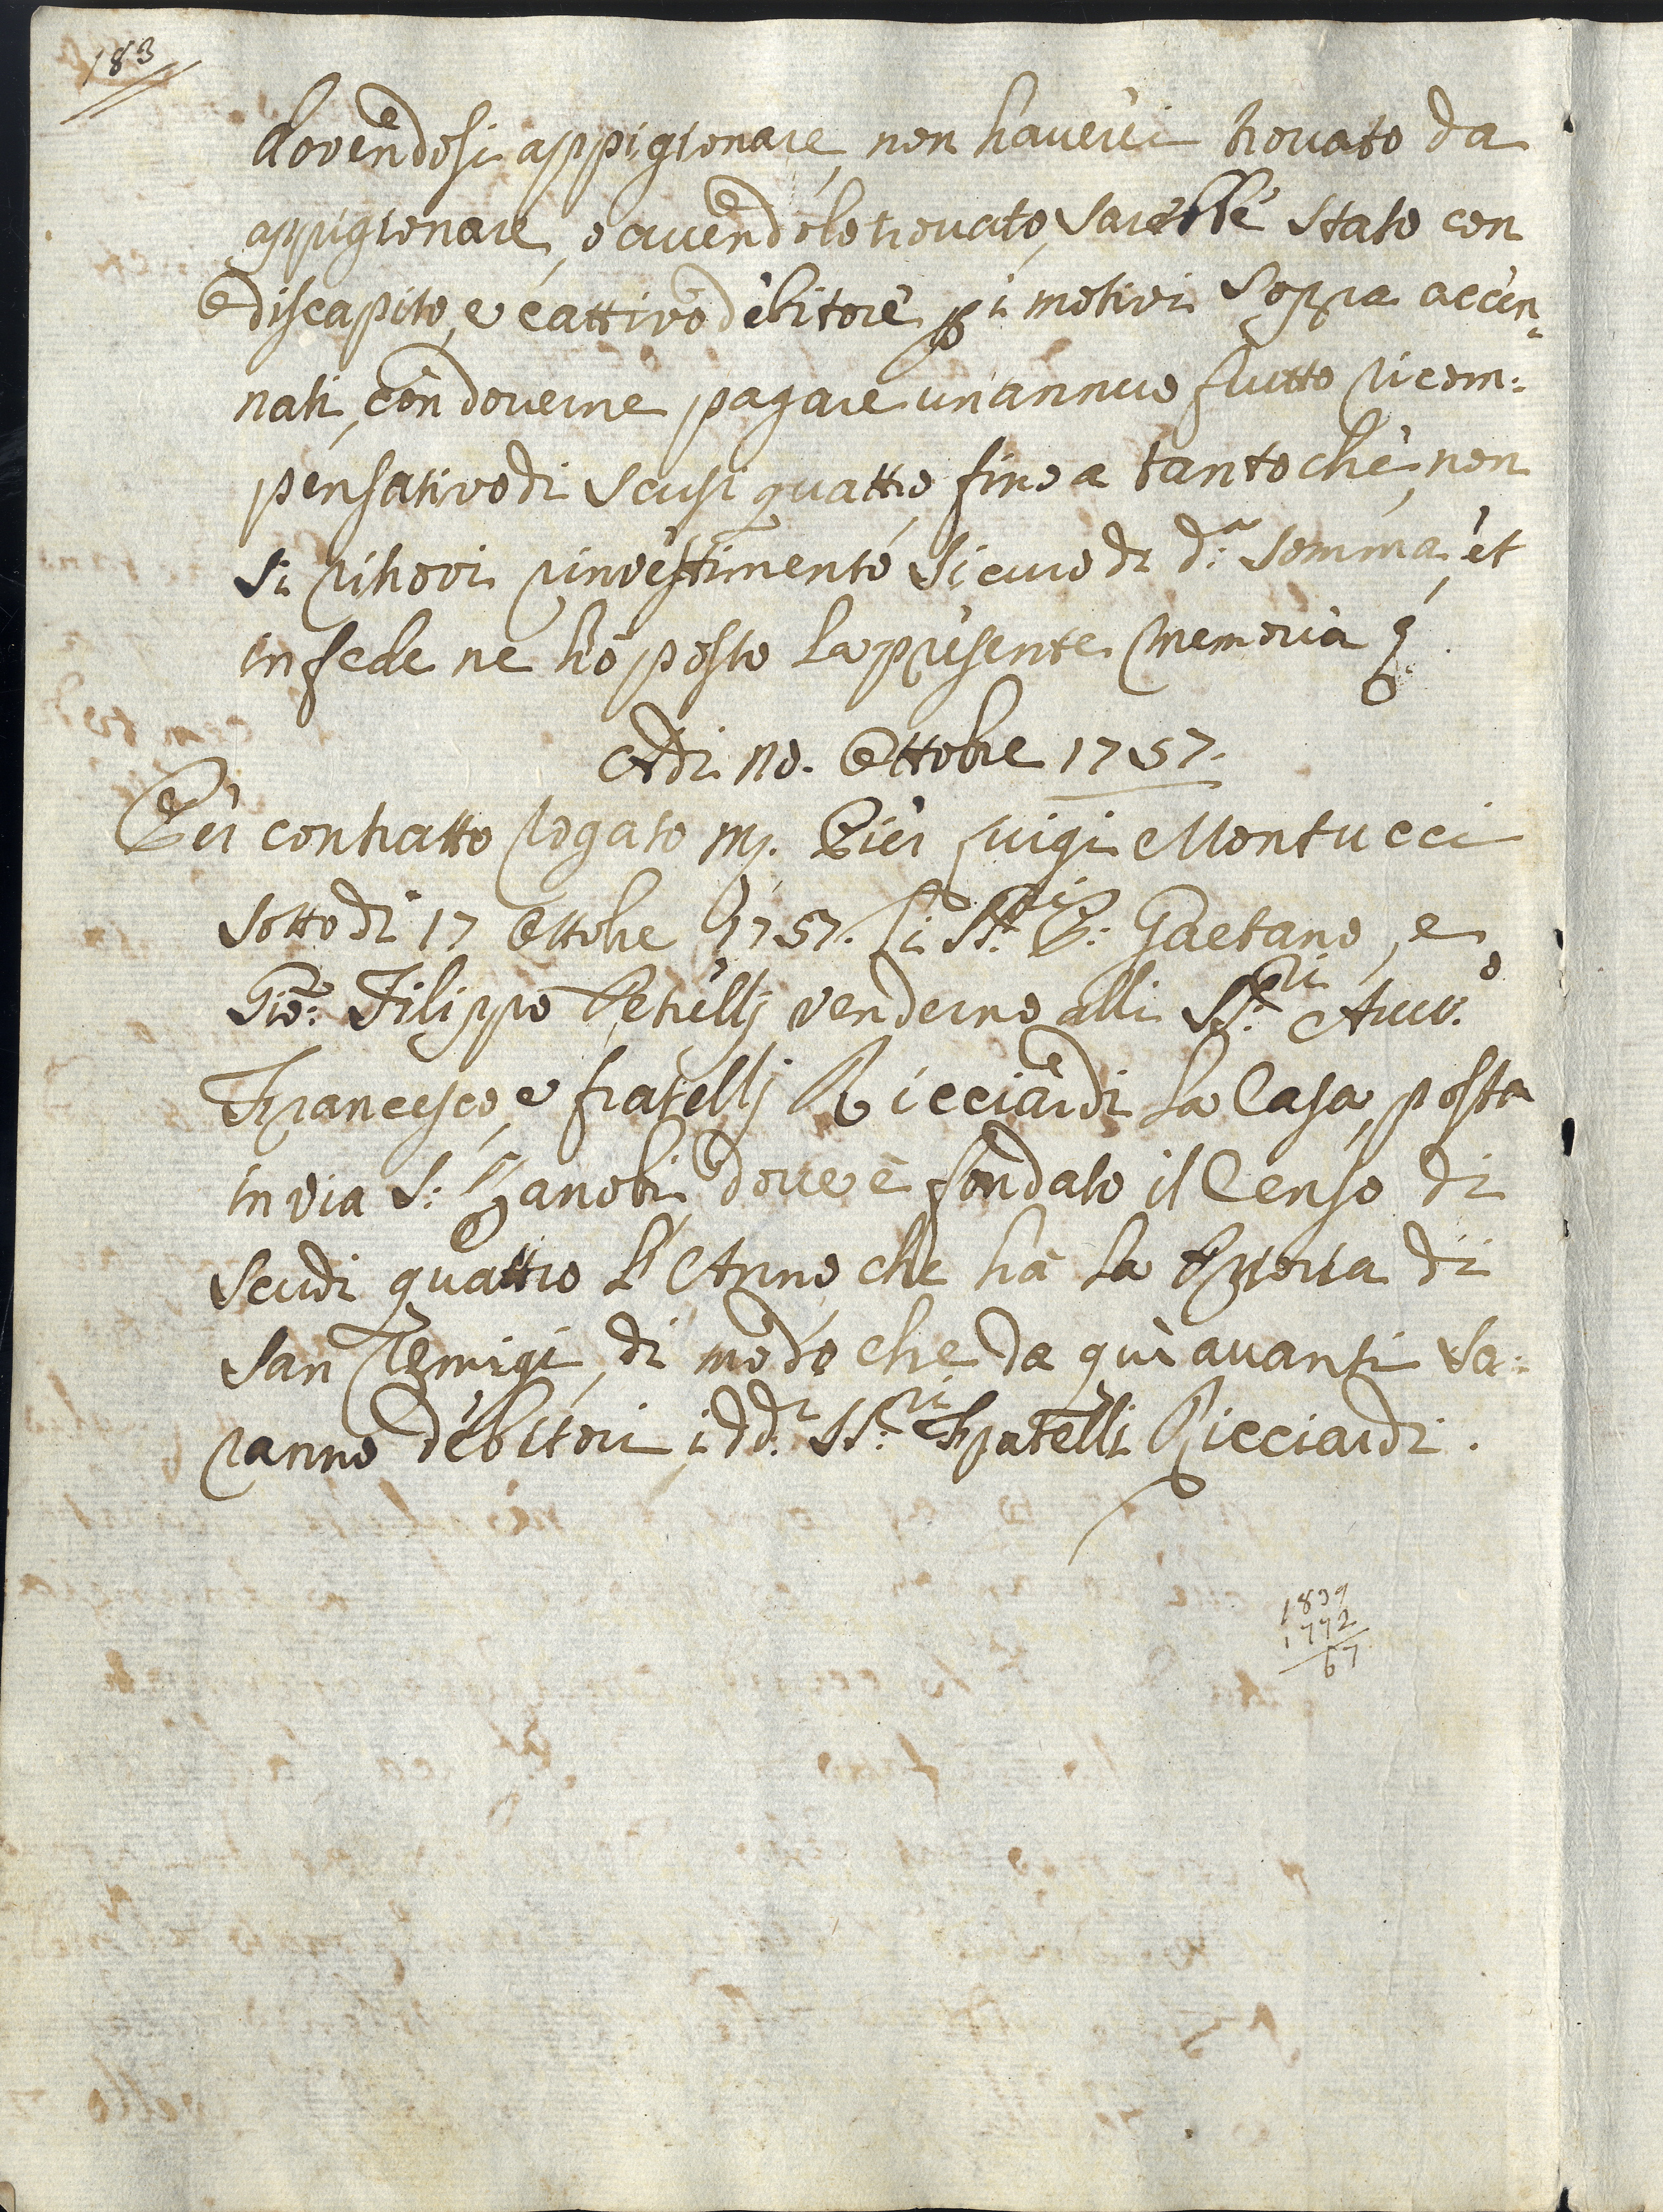 183
dovendosi appigionare, non haverci trovato da
appigionare, e avendolo trovato, sarebbe stato con
discapito, e cattivo debitore p i motivi sopra accen¬
nati, con doverne pagare un annuo frutto ricom:
pensativo di scusi quattro, fino a tanto che, non
si ritrovi rinvestimento sicuro di d.ª somma, et
in fede ne hò posto la presente memoria
Adi no. Ottobre 1757.
Per contratto rogato Pier Luigi Montucci
sotto di 17 Ottobre 1757. Li SS.ri P: Gaetano, e
Gio: Filippo Petrellj venderno alli SS.ri Avv.o
Francesco, e fratellj Ricciardi la Casa, posta
in via S: Zanobi, dove è fondato il Censo di
scudi quattro l'Anno che hà la di
San Remigi, di modo che da quì avanti sa:
ranno debitori, i dd.i SS.ri Fratelli Ricciardi.
1839
1772
67